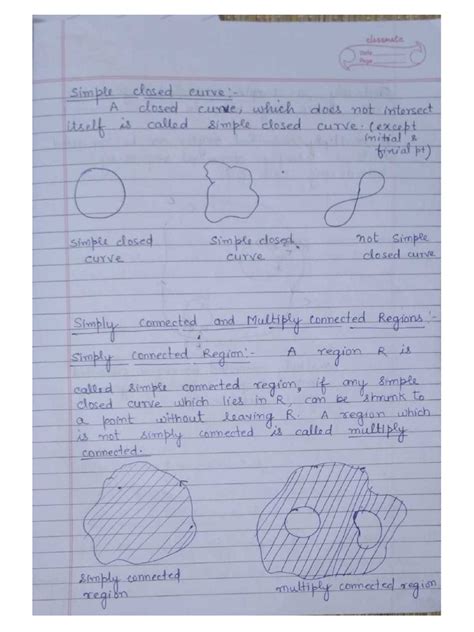 classmate
Date
Page
Simple closed curve:-
A closed curve, which does not intersect
itself is called simple closed curve. (except
initial &
finial pt)
simple closed
curve
simple closed
curve
not simple
closed curve
Simply connected and Multiply connected Regions:-
Simply connected Region:- A region R is
called simple connected region, if any simple
closed curve which lies in R, can be shrunk to
a point without leaving R. A region which
is not simply connected is called multiply
connected.
simply connected
region
multiply connected region